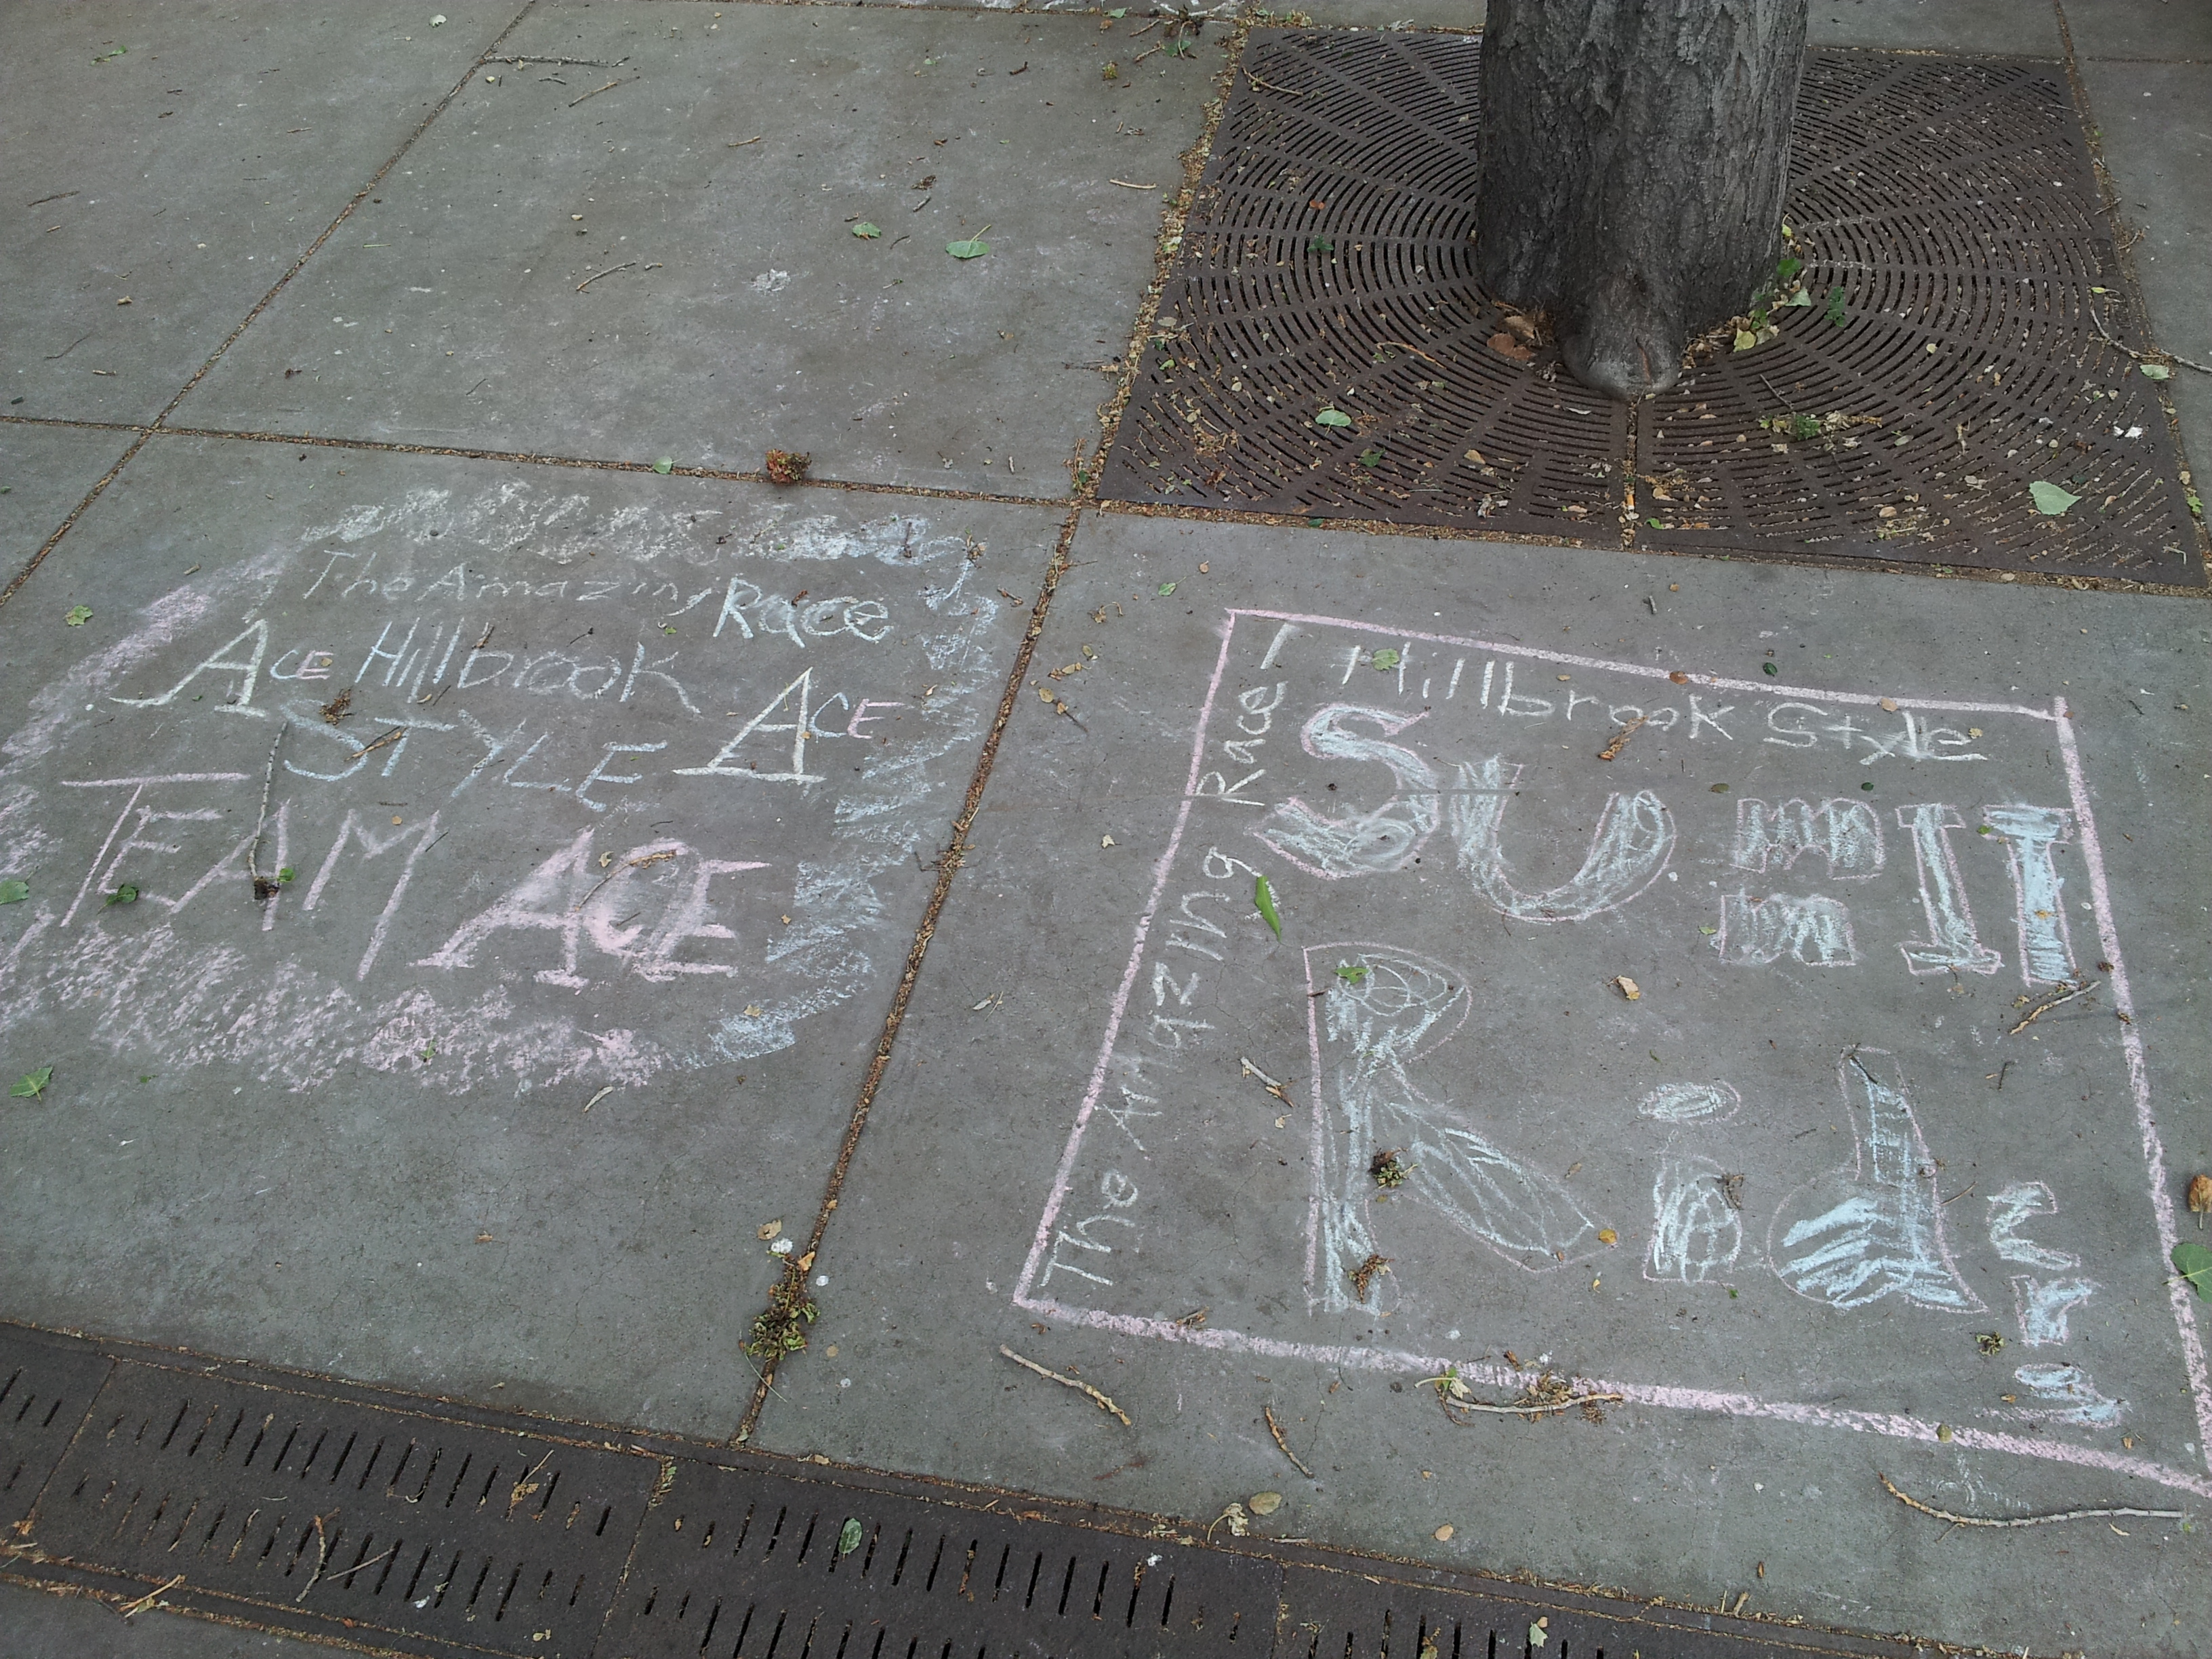 The Amazing Race
ACE Hillbrook
STYLE ACE
TEAM ACE
The Amazing Race
Hillbrook Style
Summit
Riders